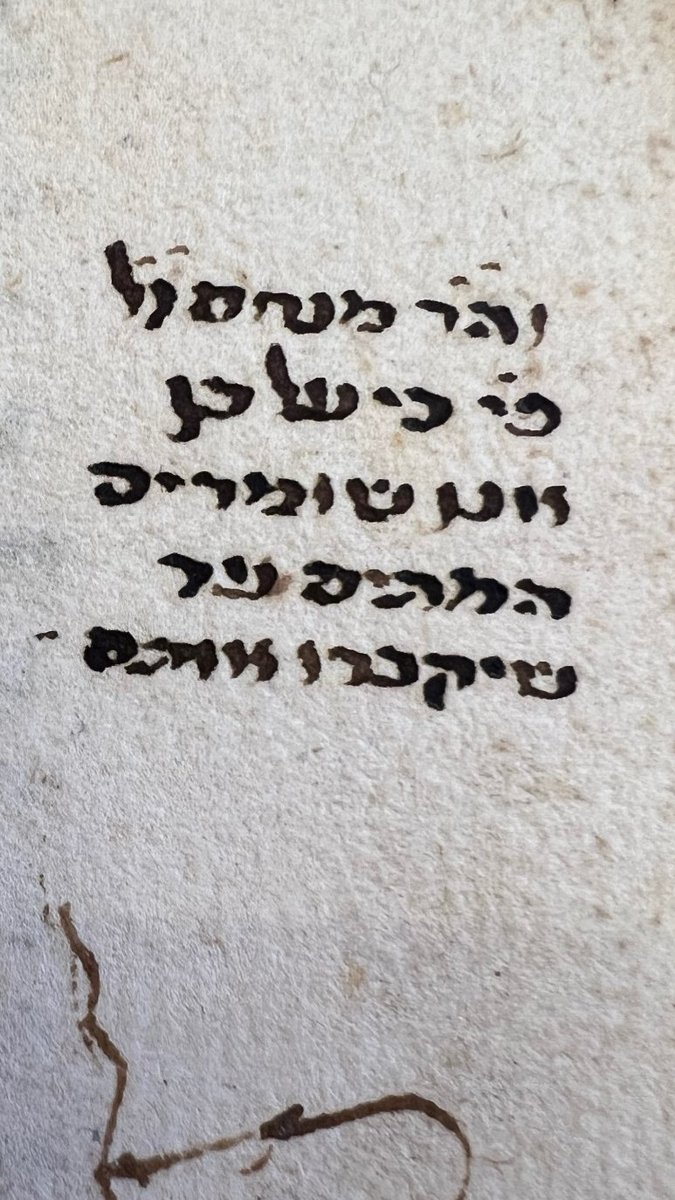 והר' מנחם ז"ל
פי' כי על כן
אנו שומרים
המתים עד
שיקברו אותם